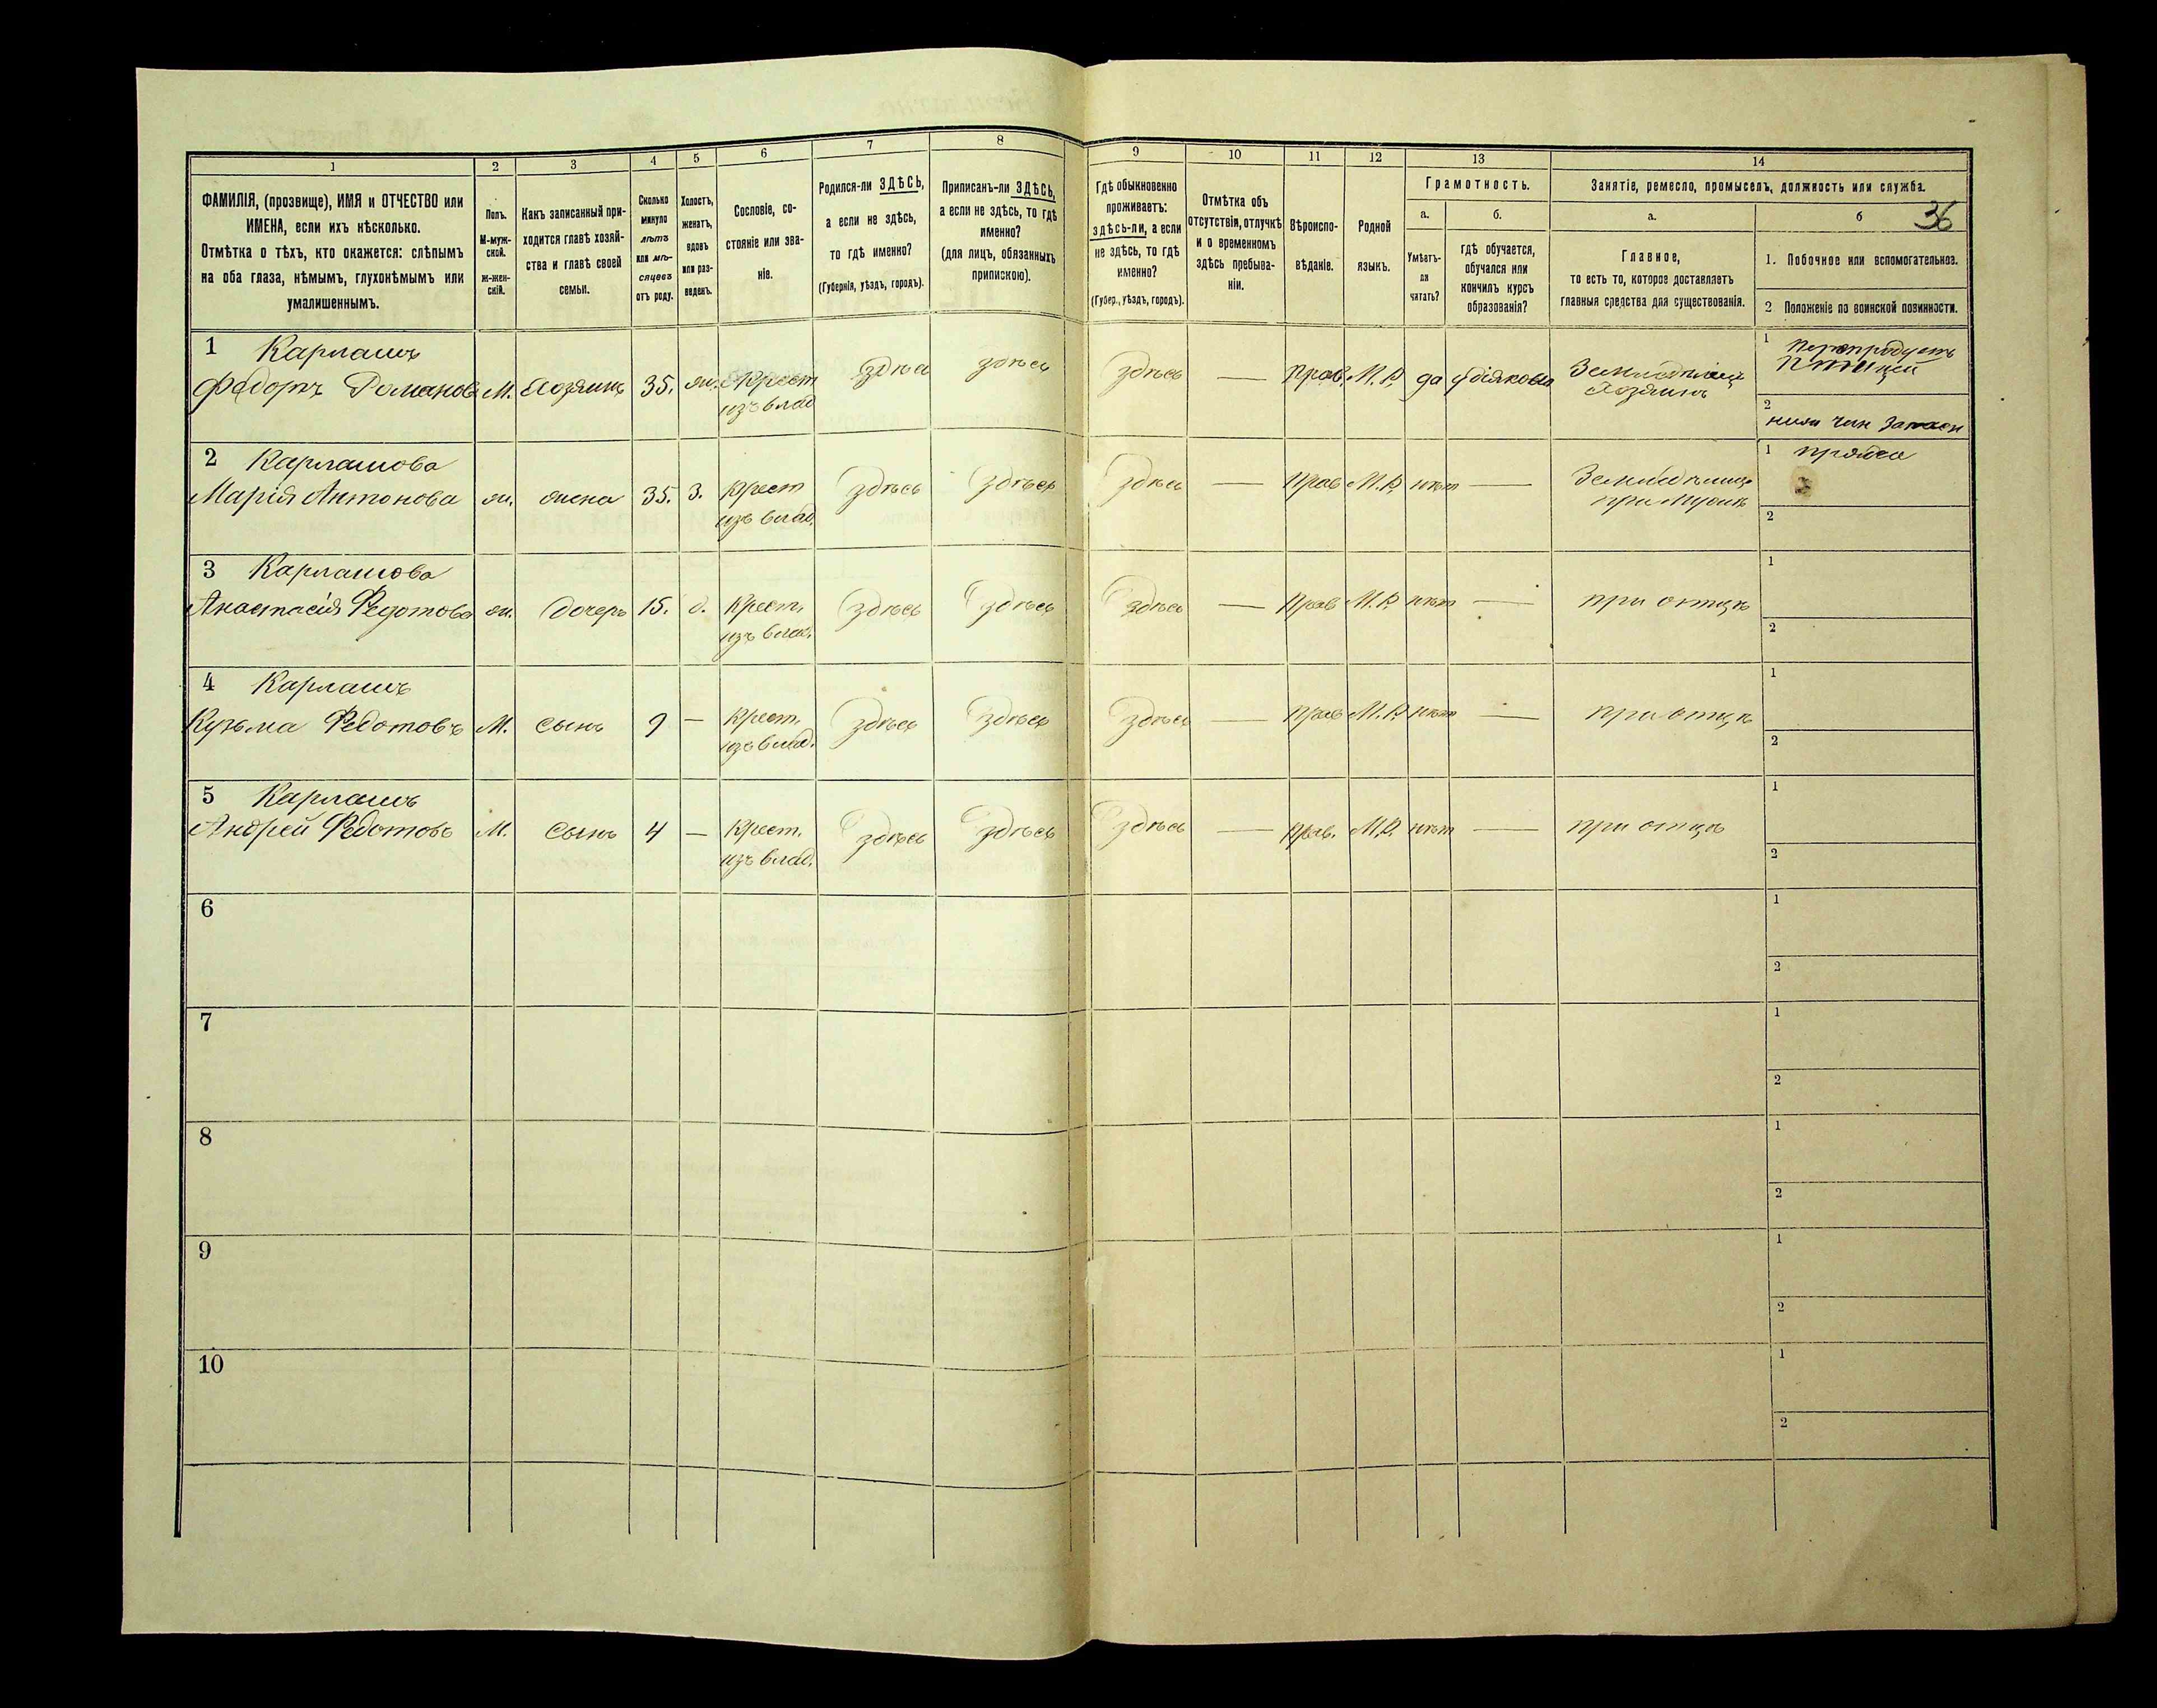 1
2
3
4
5
6
7
8
9
10
11
12
13
14
ФАМИЛІЯ, (прозвище), ИМЯ и ОТЧЕСТВО или
ИМЕНА, если ихъ нѣсколько.
Отмѣтка о тѣхъ, кто окажется: слѣпымъ
на оба глаза, нѣмымъ, глухонѣмымъ или
умалишеннымъ.
Полъ.
М-муж-
ской.
ж-жен-
скій.
Какъ записанный при-
ходится главѣ хозяй-
ства и главѣ своей
семьи.
Сколько
минуло
лѣтъ
или мѣ-
сяцевъ
отъ роду.
Холостъ,
женатъ,
вдовъ
или раз-
веденъ.
Сословіе, со-
стояніе или зва-
ніе.
Родился-ли ЗДѢСЬ,
а если не здѣсь,
то гдѣ именно?
(Губернія, уѣздъ, городъ).
Приписанъ-ли ЗДѢСЬ,
а если не здѣсь, то гдѣ
именно?
(для лицъ, обязанныхъ
припискою).
Гдѣ обыкновенно
проживаетъ:
здѣсь-ли, а если
не здѣсь, то гдѣ
именно?
(Губер., уѣздъ, городъ).
Отмѣтка объ
отсутствіи, отлучкѣ
и о временномъ
здѣсь пребыва-
ніи.
Вѣроиспо-
вѣданіе.
Родной
языкъ.
Грамотность.
а.
Умѣетъ-
ли
читать?
б.
гдѣ обучается,
обучался или
кончилъ курсъ
образованія?
Занятіе, ремесло, промыселъ, должность или служба.
а.
Главное,
то есть то, которое доставляетъ
главныя средства для существованія.
б
36
1. Побочное или вспомогательное.
2 Положеніе по воинской повинности.
1 Карлашъ
Федортъ Романовъ М. Хозяинъ 35. жн. Крест здѣсь здѣсь здѣсь — Прав. М.Р. да
изъ влад
Хозяинъ
1
птицей
2
нижн чин запасн
2 Карлашова
Марія Антонова жн. жена 35. З. Крест здѣсь здѣсь здѣсь — Прав М.Р. нѣтъ —
изъ влад.
при мужѣ
1 пряжа
2
3 Карлашова
Анастасія Федотова жн. дочерь 15. д. Крест. здѣсь здѣсь здѣсь — Прав М.Р. нѣтъ — при отцѣ
изъ влад.
1
2
4 Карлашъ
Кузьма Федотовъ М. сынъ 9 — Крест. здѣсь здѣсь здѣсь — Прав М.Р. нѣтъ — при отцѣ
изъ влад.
1
2
5 Карлашъ
Андрей Федотовъ М. сынъ 4 — Крест. здѣсь здѣсь здѣсь — Прав. М.Р. нѣтъ — при отцѣ
изъ влад.
1
2
6
1
2
7
1
2
8
1
2
9
1
2
10
1
2